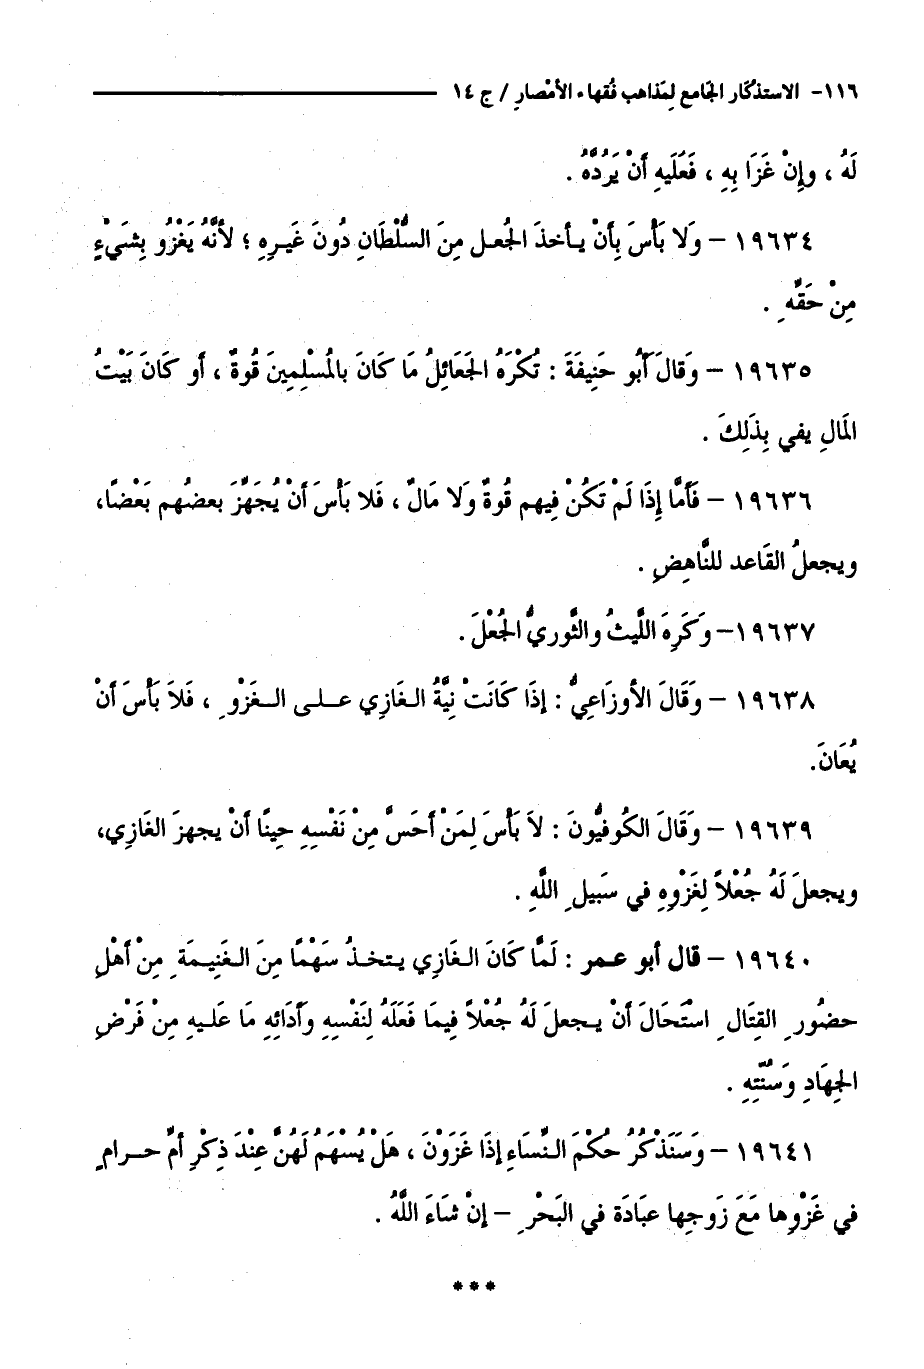 ١١٦- الاستذْكَار الجَامع لِمَذاهب فُقهاء الأمْصارِ / ج ١٤
لَهُ ، وإِنْ غَزَا بِهِ ، فَعَلَيهِ أَنْ يَرُدَّهُ .
١٩٦٣٤ – وَلا بَأْسَ بِأَنْ يـأخذَ الجُعـل مِنَ السُّلْطَانِ دُونَ غَيـرِهِ ؛ لأنَّهُ يَغْزُو بِشَيْءٍ
مِنْ حَقِّهِ .
١٩٦٣٥ – وَقالَ أَبُو حَنِيفَةَ : تُكْرَهُ الجَعَائِلُ مَا كَانَ بالمُسْلِمِينَ قُوةٌ ، أو كَانَ بَيْتُ
المَالِ يفي بِذَلِكَ .
١٩٦٣٦ – فَأَمَّا إِذَا لَمْ تَكُنْ فِيهم قُوةٌ وَلا مَالٌ ، فَلا بَأْسَ أَنْ يُجَهِّزَ بعضُهم بَعْضًا،
ويجعلُ القَاعد للنَّاهِضِ .
١٩٦٣٧– وَكَرِهَ اللَّيثُ والثَّوريُّ الجُعْلَ .
١٩٦٣٨ – وَقَالَ الأوزَاعِيُّ : إذَا كَانَتْ نِيَّةُ الـغَازِي عـلـى الـغَزْوِ ، فَلاَ بَأْسَ أَنْ
يُعَانَ.
١٩٦٣٩ – وَقَالَ الكُوفيُّونَ : لاَ بَأْسَ لِمَنْ أَحَسَّ مِنْ نَفْسِهِ حِينًا أَنْ يجهزَ الغَازِي،
ويجعلَ لَهُ جُعْلاً لِغَزْوِهِ في سَبيلِ اللَّهِ .
١٩٦٤٠ – قال أبو عـمر : لَمَّا كَانَ الـغَازِي يـتخـذُ سَهْمًا مِنَ الـغَنِيـمَةِ مِنْ أَهْلِ
حضُورِ القِتَالِ اسْتَحَالَ أَنْ يـجعلَ لَهُ جُعْلاً فِيمَا فَعَلَهُ لِنَفْسِهِ وَأَدَائِهِ مَا عَلَـيهِ مِنْ فَرْضِ
الجِهَادِ وَسُنَّتِهِ .
١٩٦٤١ – وَسَنَذْكُرُ حُكْمَ الـنِّسَاءِ إذَا غَزَوْنَ ، هَلْ يُسْهَمُ لَهُنَّ عِنْدَ ذِكْرِ أمِّ حـرامٍ
في غَزْوِها مَعَ زَوجِها عبَادَة في البَحْرِ – إنْ شَاءَ اللَّهُ .
***